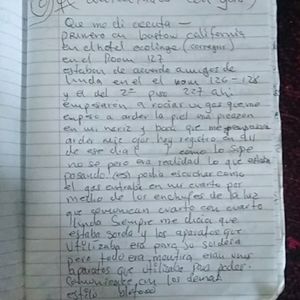 Que me di cecuta —
primero en bastow california
en el hotel ecolinge (corregir)
en el Room 127
estaban de acuerdo amigos de
linda en el el room 126 – 128
y el del 2º piso 227 ahi
empesaron a rociar un gas que me
empeso a arder la piel me
en mi nariz y boca que me
arder mis ojos hay registro en
de ese dia y como lo supe
no se pero era realidad lo que estaba
pasando podia escuchar como
el gas entraba en mi cuarto por
medio de los enchufes de la luz
que comunican cuarto con cuarto
linda Sempre me dicia que
estaba sorda y los aparatos que
utilizaba era para su soldera
pero todo era mentira eran unos
aparatos que utilizaba para poder
comunicarse con los demas
estilo blotoso